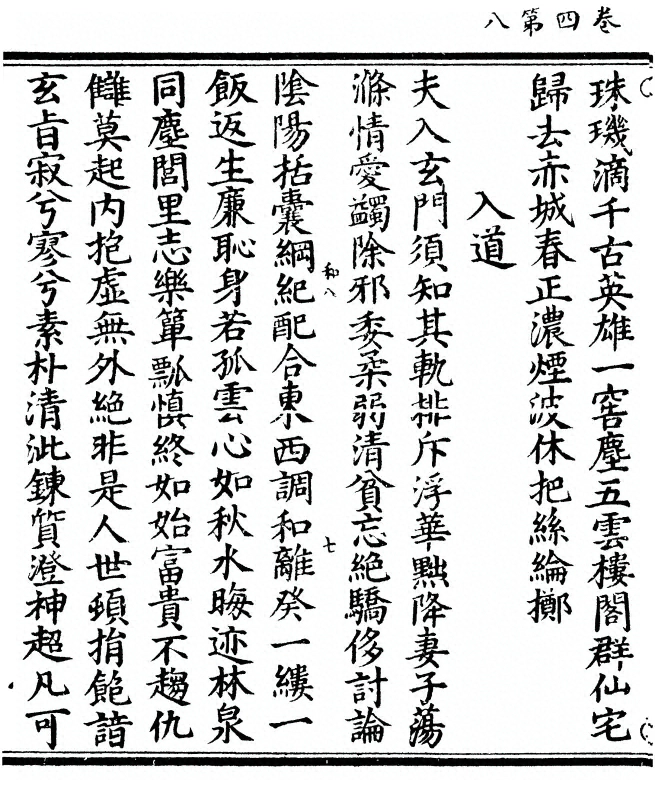 卷四第八
珠璣滴千古英雄一窖塵五雲樓閣群仙宅
歸去赤城春正濃煙波休把絲綸擲
入道
夫入玄門須知其軌排斥浮華黜降妻子蕩
滌情愛蠲除邪委柔弱清貧忘絕驕侈討論
陰陽括囊綱紀配合東西調和離癸一縷一
和八
七
飯返生廉恥身若孤雲心如秋水晦迹林泉
同塵閭里志樂簞瓢慎終如始富貴不趨仇
讎莫起内抱虛無外絕非是人世頓捐飽諳
玄旨寂兮寥兮素朴清泚鍊質澄神超凡可